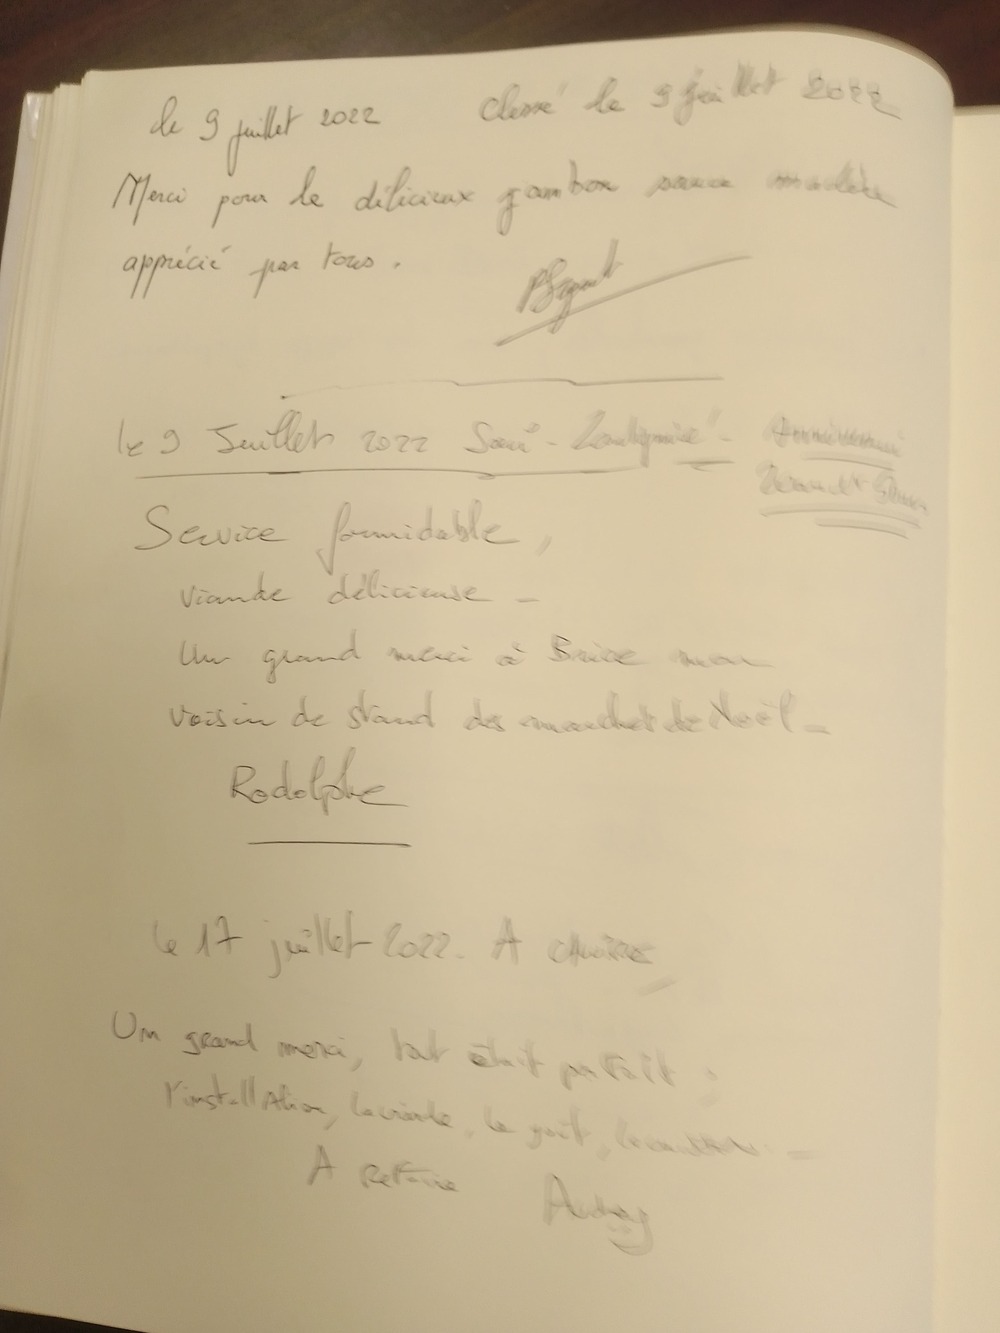 le 9 juillet 2022 le 9 juillet 2022
Merci pour le délicieux jambon sauce
apprécié par tous.
le 9 Juillet 2022
Service formidable,
viande délicieuse -
Un grand merci à Brice mon
voisin de stand des marchés de Noël -
Rodolphe
le 17 juillet 2022. A
Un grand merci, tout était parfait :
l'installation, la viande, le goût,
A Refaire Audrey